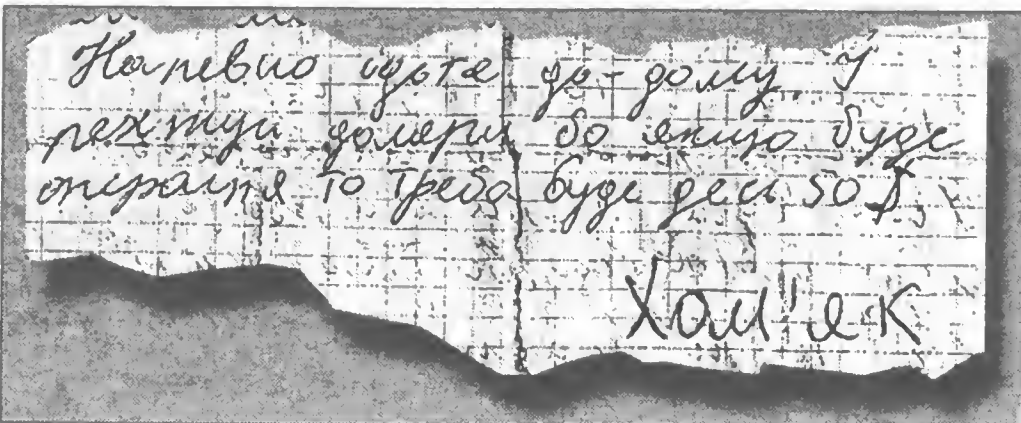 Напевно идьте до-дому. І
режтуй долери бо якщо буде
операція то треба буде десь 50$
Хом'як